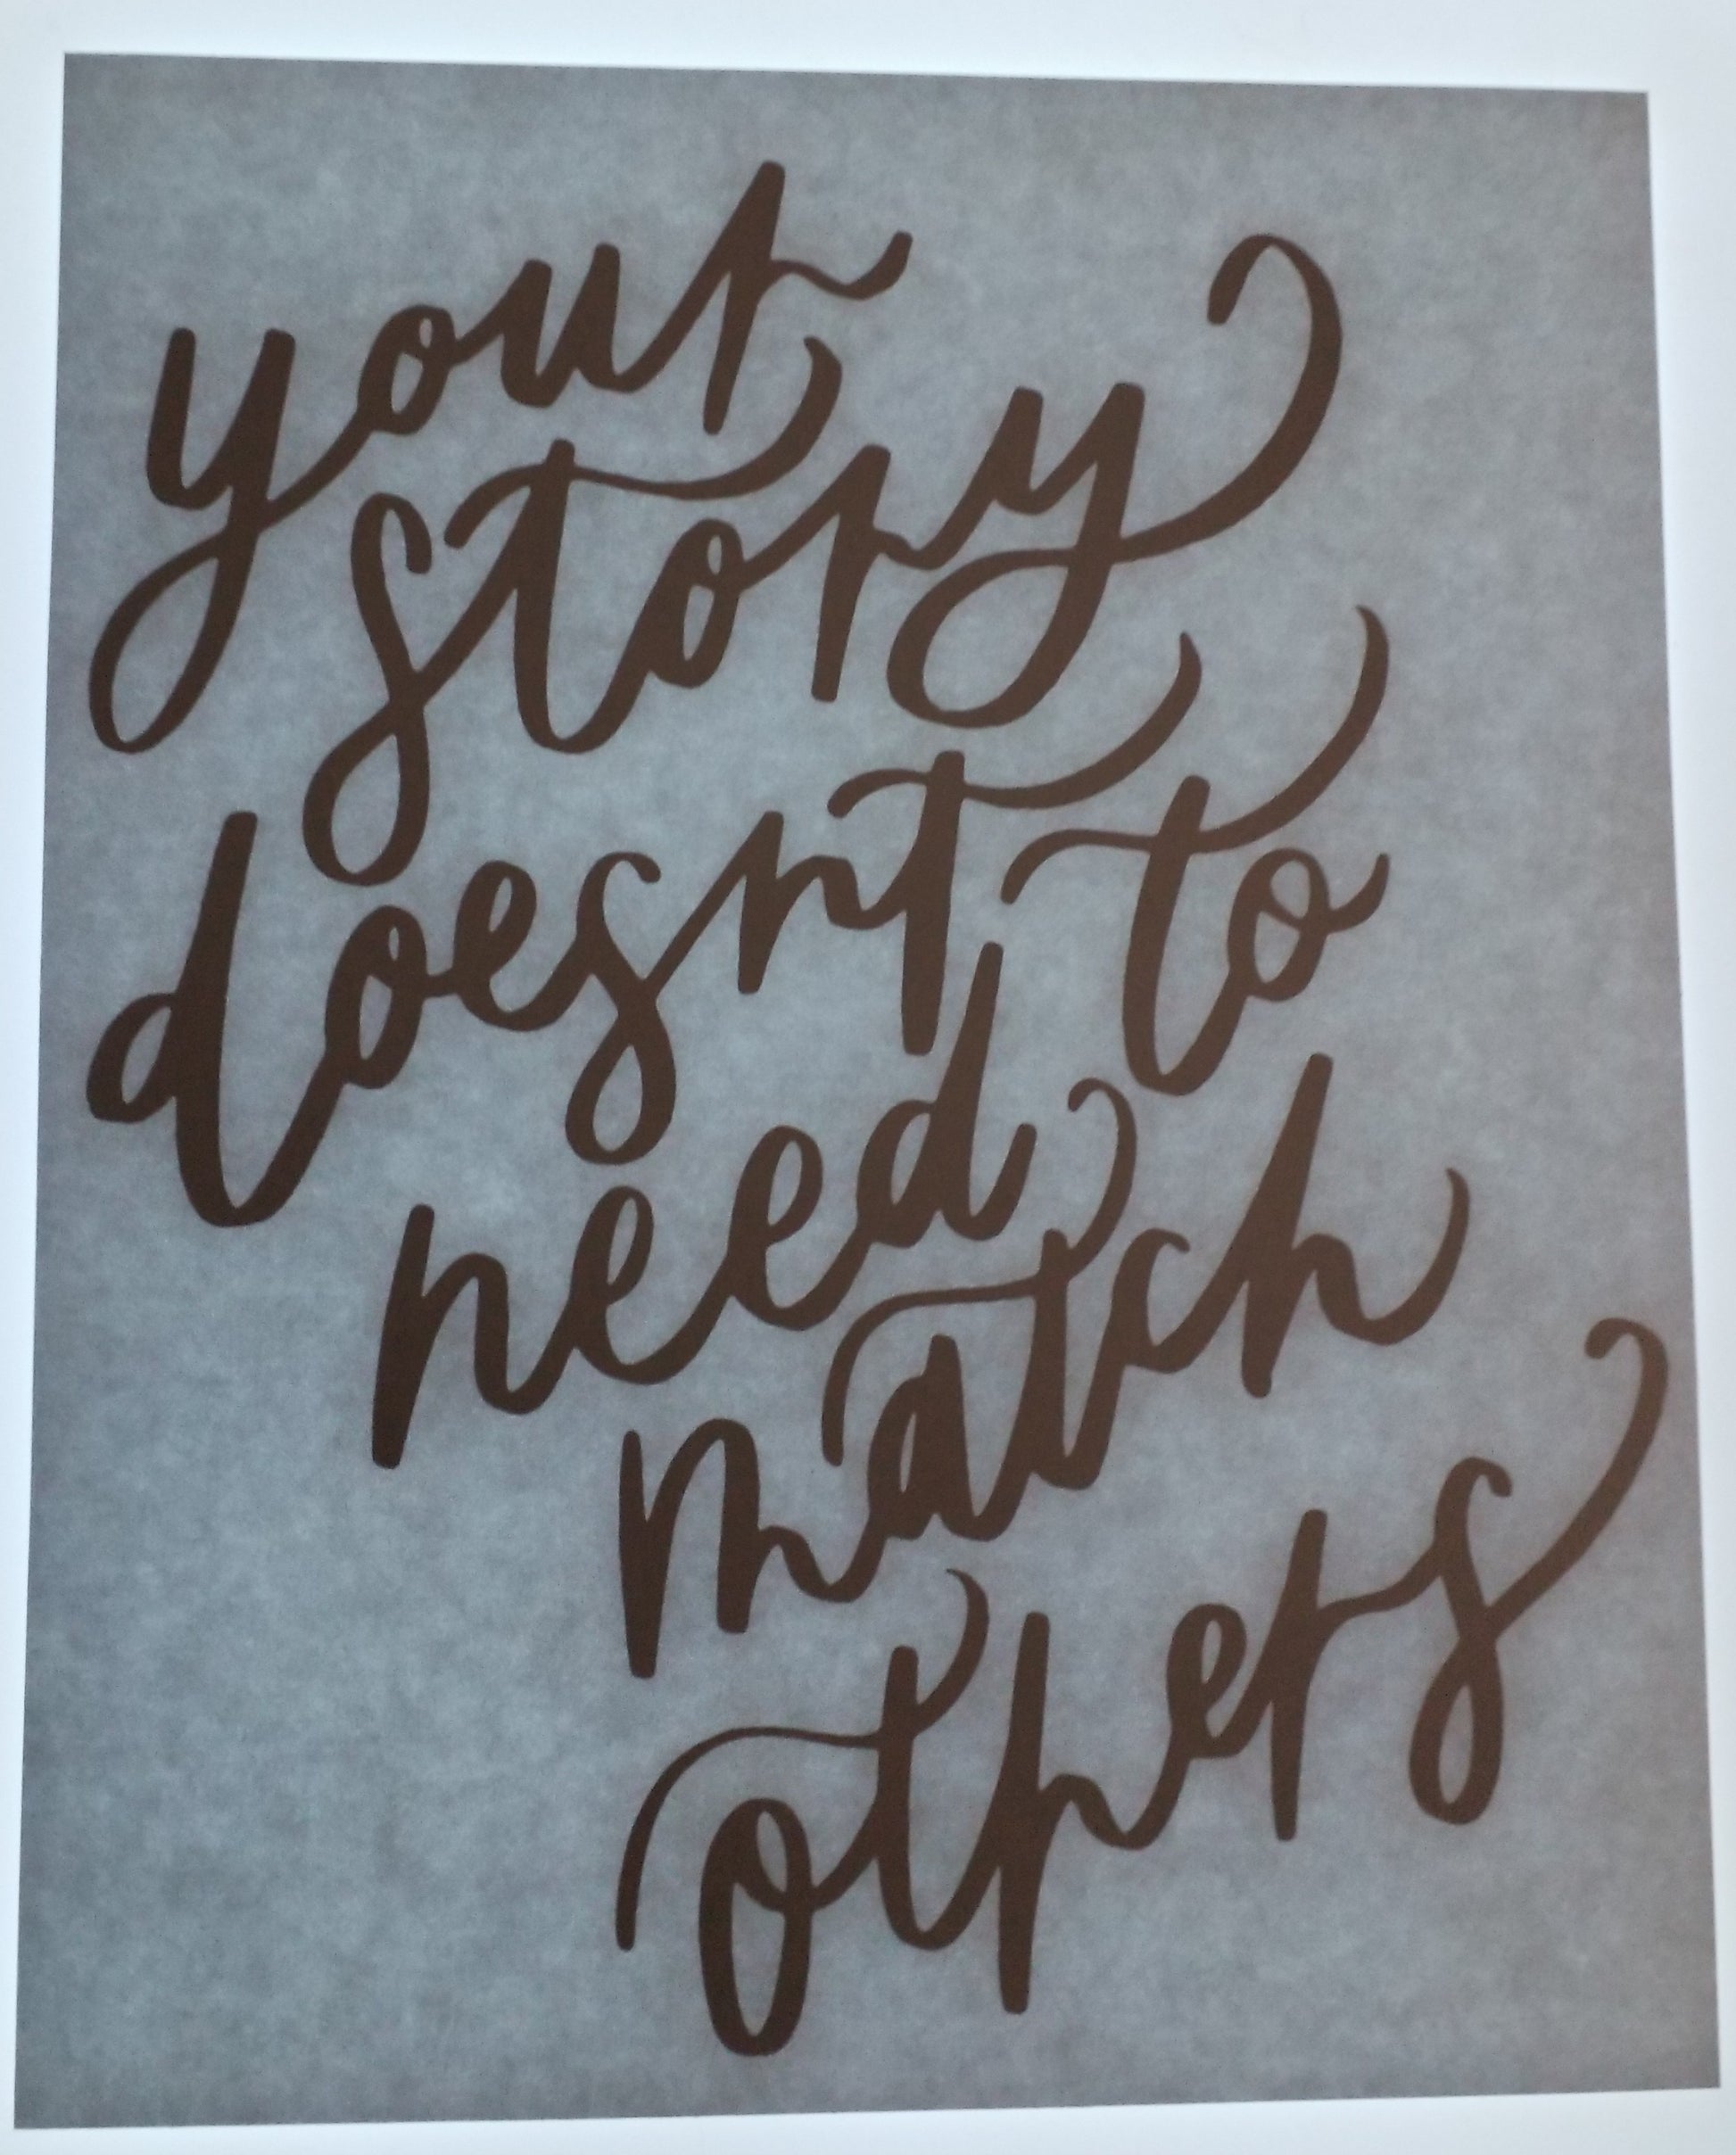 your
story
doesnt to
need
match
others